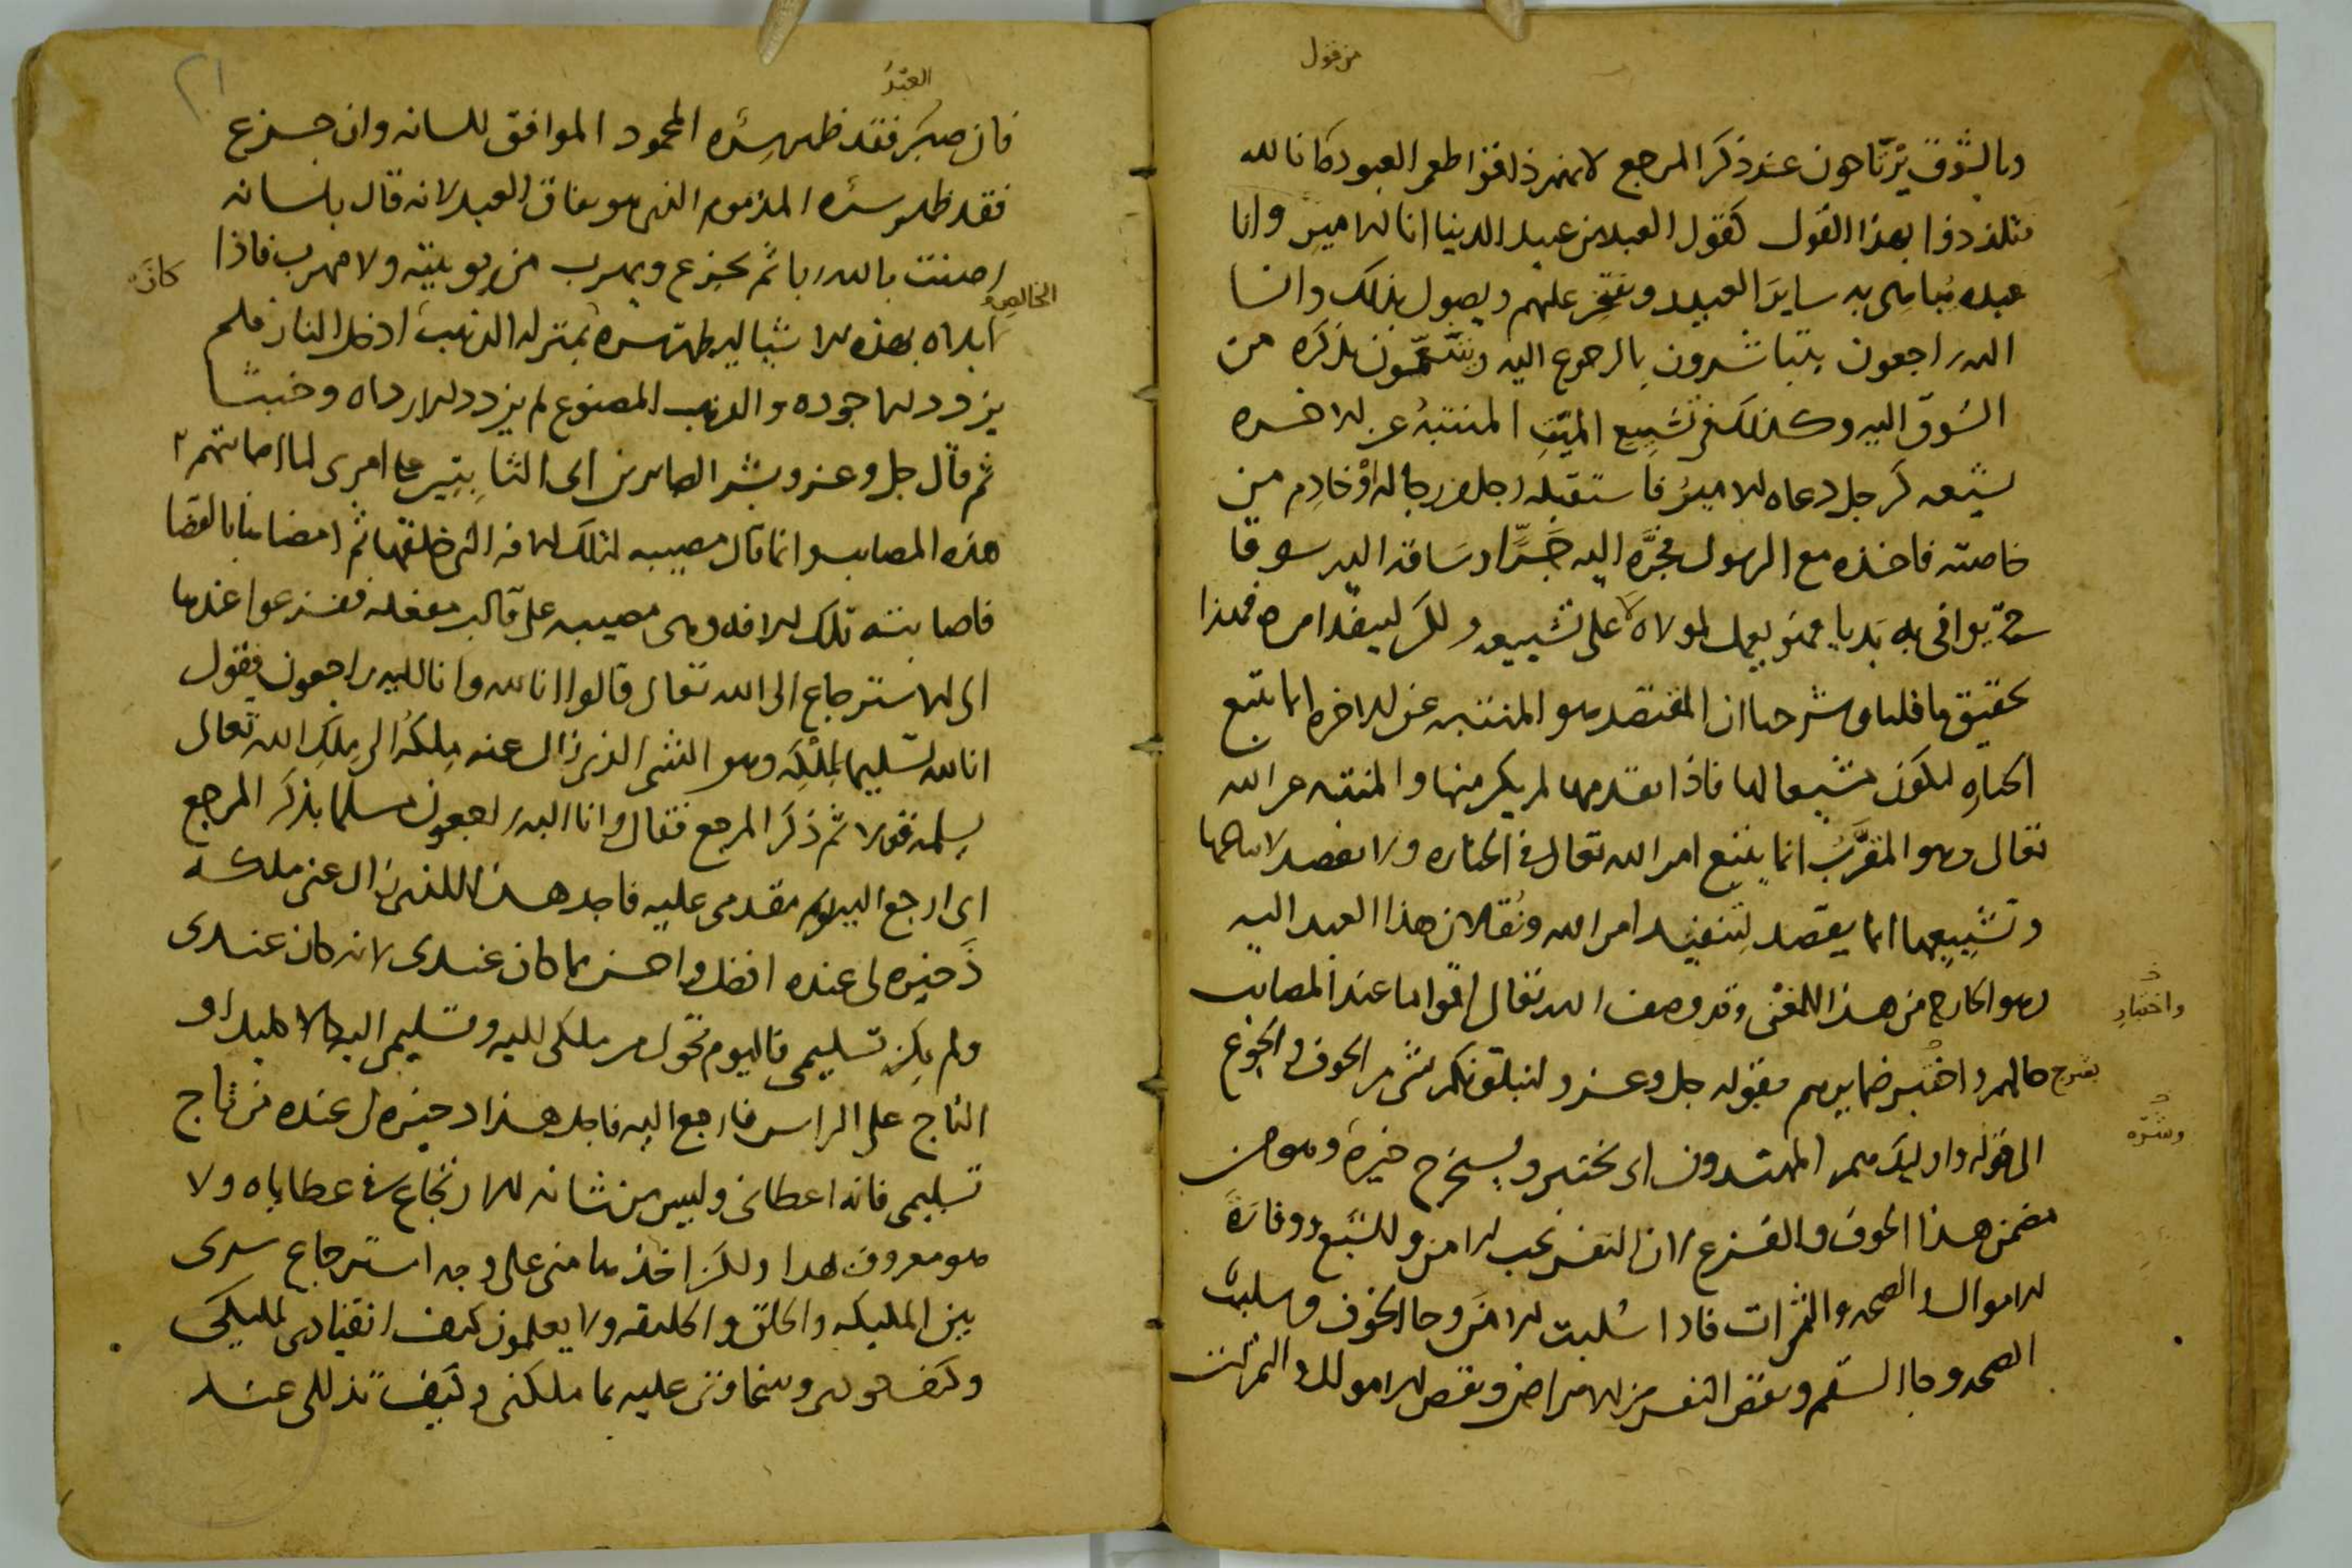 من قول
وبالشوق يرتاحون عند ذكر المرجع لانهم ذاقوا طعم العبودة انا لله
تلذذوا بهذا القول كقول العبد من عبيد الدنيا انا للامير وانا
عبده يباهي به ساير العبيد ويفتخر عليهم ويصول بذلك وانا
اليه راجعون يتباشرون بالرجوع اليه من
الشوق اليه وكذلك في تشييع الميت المنتبه عن الاخره
يشيعه كرجل دعاه الامير فاستقبله رجل من رجاله او خادم من
خاصته فاخذه مع الرسول فجره اليه جرا وساقه اليه سوقا
حتى يوافى به على تشييعه ولكن لينفذ امره فهذا
تحقيق ما قلنا وشرحنا ان المقتصد هو المنتبه عن الاخره انما يتبع
الجنازه ليكون مشيعا لها فاذا تقدمها لم يكن منها والمنتبه عن الله
تعالى وهو المقرب انما يتبع امر الله تعالى في الجنازه ولا يقصد لاتباعها
وتشييعها انما يقصد لتنفيذ امر الله ونقلان هذا العبد اليه
وهو الخارج من هذا المعنى وقد وصف الله تعالى اقواما عند المصايب
واختبار
يشرح حالهم واختبر ضمايرهم بقوله جل وعز ولنبلونكم بشى من الخوف والجوع
الى قوله واوليك هم المهتدون اى نختبر ويستخرج خيره وهو من
وشره
مضمن هذا الخوف والفزع لان النفس تحب الامن والشبع ووفارة
الاموال والصحه والثمرات فاذا سلبت الامن وجا الخوف وسلبت
الصحه وجا السقم ونقص النفس من الامراض ونقص الاموال والثمرات
٢١
العبد
فان صبر فقد ظهر سره المحمود الموافق للسانه وان جزع
فقد ظهر سره المذموم الذى هو نفاق العبد لانه قال بلسانه
امنت بالله ربا ثم يجزع ويهرب من ربوبيته ولا مهرب فاذا
كان
الخالص
ابلاه بهذه الاشيا ليظهر سره بمنزله الذهب ادخل النار فلم
يزدد الا جوده والذهب المصنوع لم يزدد الا رداه وخبثا
ثم قال جل وعز وبشر الصابرين اى الثابتين على امرى لما اصابتهم
هذه المصايب وانما قال مصيبه لتلك الافه التي خلقها ثم امضاها بالقضا
فاصابته تلك الافه وهى مصيبه على قالب مغفله ففزعوا عندها
الى الاسترجاع الى الله تعالى قالوا انا لله وانا اليه راجعون فيقول
انا لله تسليما لملكه وهو الشى الذى زال عنه ملكه الى ملك الله تعالى
يسلمه قولا ثم ذكر المرجع فقال وانا اليه راجعون سلما بذكر المرجع
اى ارجع اليه يوم مقدمى عليه فاجد هذا الذى زال عنى ملكه
ذخيره لى عنده افضل واحسن مما كان عندى لانه كان عندى
ولم يكن تسليمى فاليوم تحول من ملكى اليه وتسليمى اليه
التاج على الراس فارجع اليه فاجد هذا ذخيره لى عنده من تاج
تسليمى فانه اعطانى وليس من شانه الارتجاع فى عطاياه ولا
هو معروف بهذا ولكن اخذها منى على وجه استرجاع سرى
بين المليكه والخلق والخليقه ولا يعلمون كيف انقيادى لمليكى
وكيف وسخاوتى عليه بما ملكنى وكيف تذللى عند